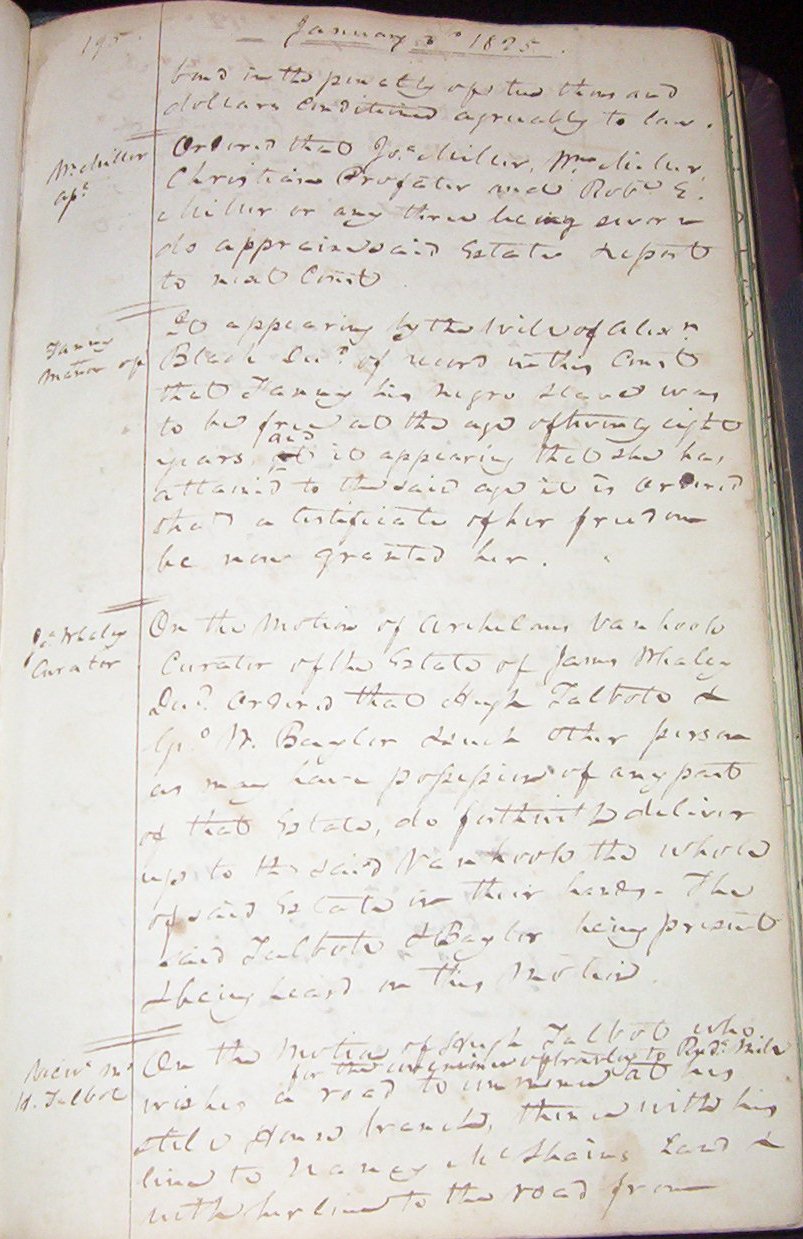 195. January 3d 1825.
bond in the penalty of two thousand
dollars conditioned agreeably to law.
Miller
aps
Ordered that Jos. Miller, Wm Miller,
Christian Profater and Robt E.
Miller or any three being sworn
do appraise said Estate & report
to next Court
Fanny
Matter of
It appearing by the Will of Alexr
Black Decd of record in this Court
that Fanny his negro Slave was
to be free at the age of twenty eight
years, and it appearing that she has
attained to the said age it is Ordered
that a Certificate of her freedom
be now granted her.
Js Whaley
Curator
On the Motion of Archelous Vanhook
Curator of the Estate of James Whaley
Decd. Ordered that Hugh Talbott &
Geo W. Baylor & such other person
as may have possession of any part
of that Estate, do forthwith deliver
up to the said Vanhook the whole
of said Estate in their hands. The
said Talbott & Baylor being present
& being heard on this Motion
H. Talbot
On the Motion of Hugh Talbot who
for the convenience of traveling to Mill
wishes a road to commence at his
Still House branch, thence with his
line to Nancy McShains Land &
with her line to the road from